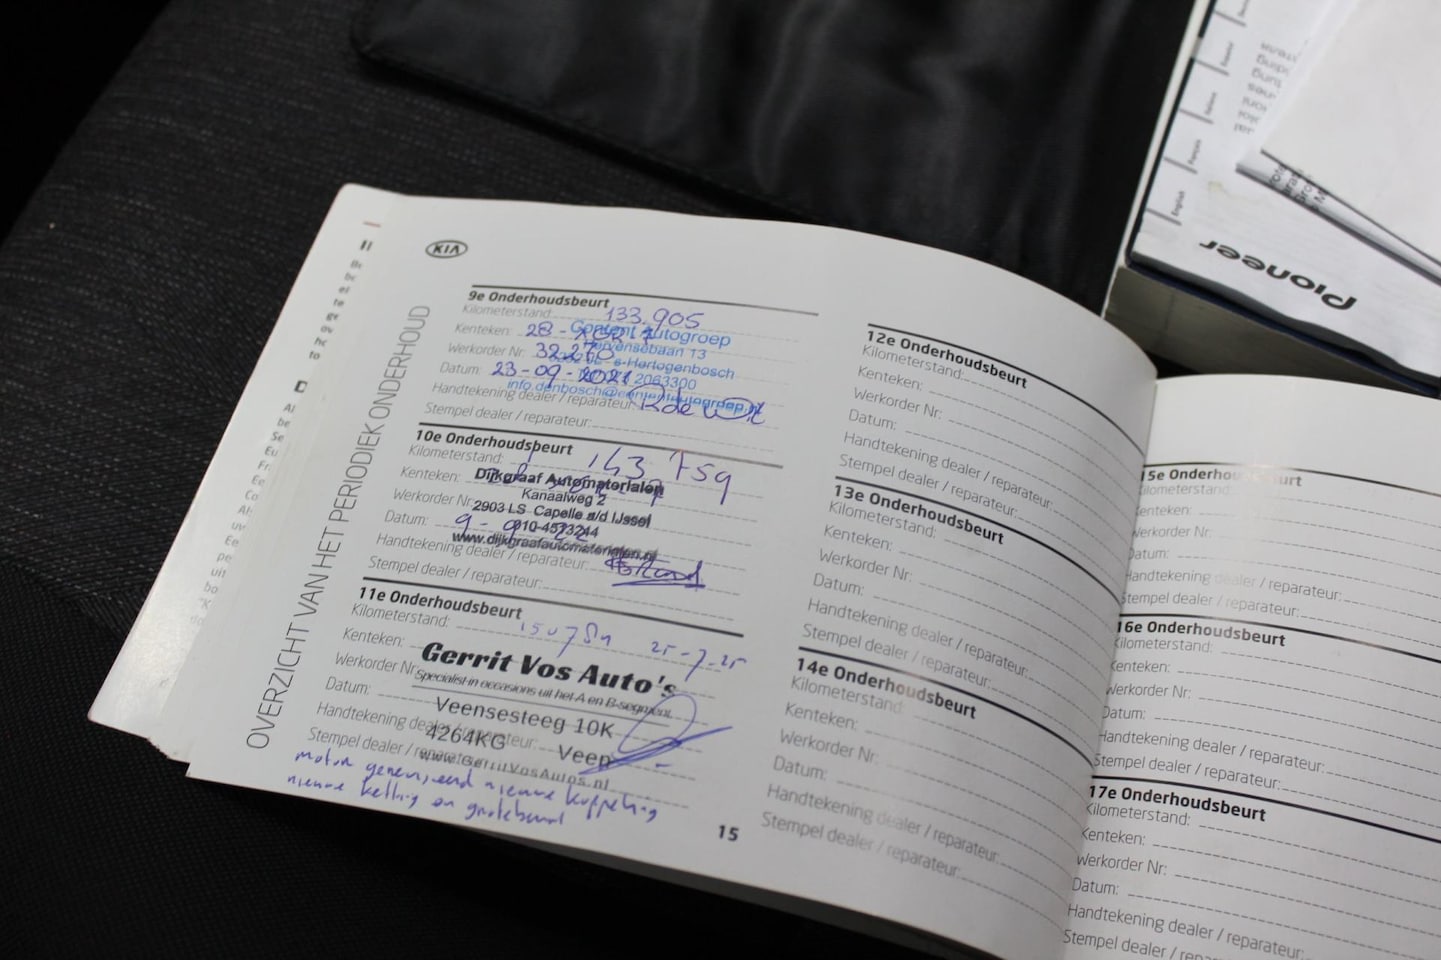 KIA
OVERZICHT VAN HET PERIODIEK ONDERHOUD
9e Onderhoudsbeurt
Kilometerstand: 133.905
Kenteken: 28-
Content Autogroep
13
Werkorder Nr: 32270
's-Hertogenbosch
Datum: 23-09-2021
2063300
info.denbosch@contentautogroep.nl
Handtekening dealer / reparateur: R de Wit
Stempel dealer / reparateur:
10e Onderhoudsbeurt
Kilometerstand: 143 759
Kenteken:
Dijkgraaf Automaterialen
Kanaalweg 2
Werkorder Nr:
2903 LS Capelle a/d IJssel
Datum: 9-
010-4573244
www.dijkgraafautomaterialen.nl
Handtekening dealer / reparateur:
Stempel dealer / reparateur:
11e Onderhoudsbeurt
Kilometerstand: 25-7-25
Kenteken:
Gerrit Vos Auto's
Werkorder Nr:
Specialist in occasions uit het A en B-segment
Datum:
Veensesteeg 10K
Handtekening dealer / reparateur:
4264KG Veen
Stempel dealer / reparateur:
www.GerritVosAutos.nl
motor gereviseerd nieuwe koppeling
nieuwe ketting en grotebeurt
15
12e Onderhoudsbeurt
Kilometerstand:
Kenteken:
Werkorder Nr:
Datum:
Handtekening dealer / reparateur:
Stempel dealer / reparateur:
13e Onderhoudsbeurt
Kilometerstand:
Kenteken:
Werkorder Nr:
Datum:
Handtekening dealer / reparateur:
Stempel dealer / reparateur:
14e Onderhoudsbeurt
Kilometerstand:
Kenteken:
Werkorder Nr:
Datum:
Handtekening dealer / reparateur:
Stempel dealer / reparateur:
15e Onderhoudsbeurt
Kilometerstand:
Kenteken:
Werkorder Nr:
Datum:
Handtekening dealer / reparateur:
Stempel dealer / reparateur:
16e Onderhoudsbeurt
Kilometerstand:
Kenteken:
Werkorder Nr:
Datum:
Handtekening dealer / reparateur:
Stempel dealer / reparateur:
17e Onderhoudsbeurt
Kilometerstand:
Kenteken:
Werkorder Nr:
Datum:
Handtekening dealer / reparateur:
Stempel dealer / reparateur:
Pioneer
English
Français
Italiano
Español